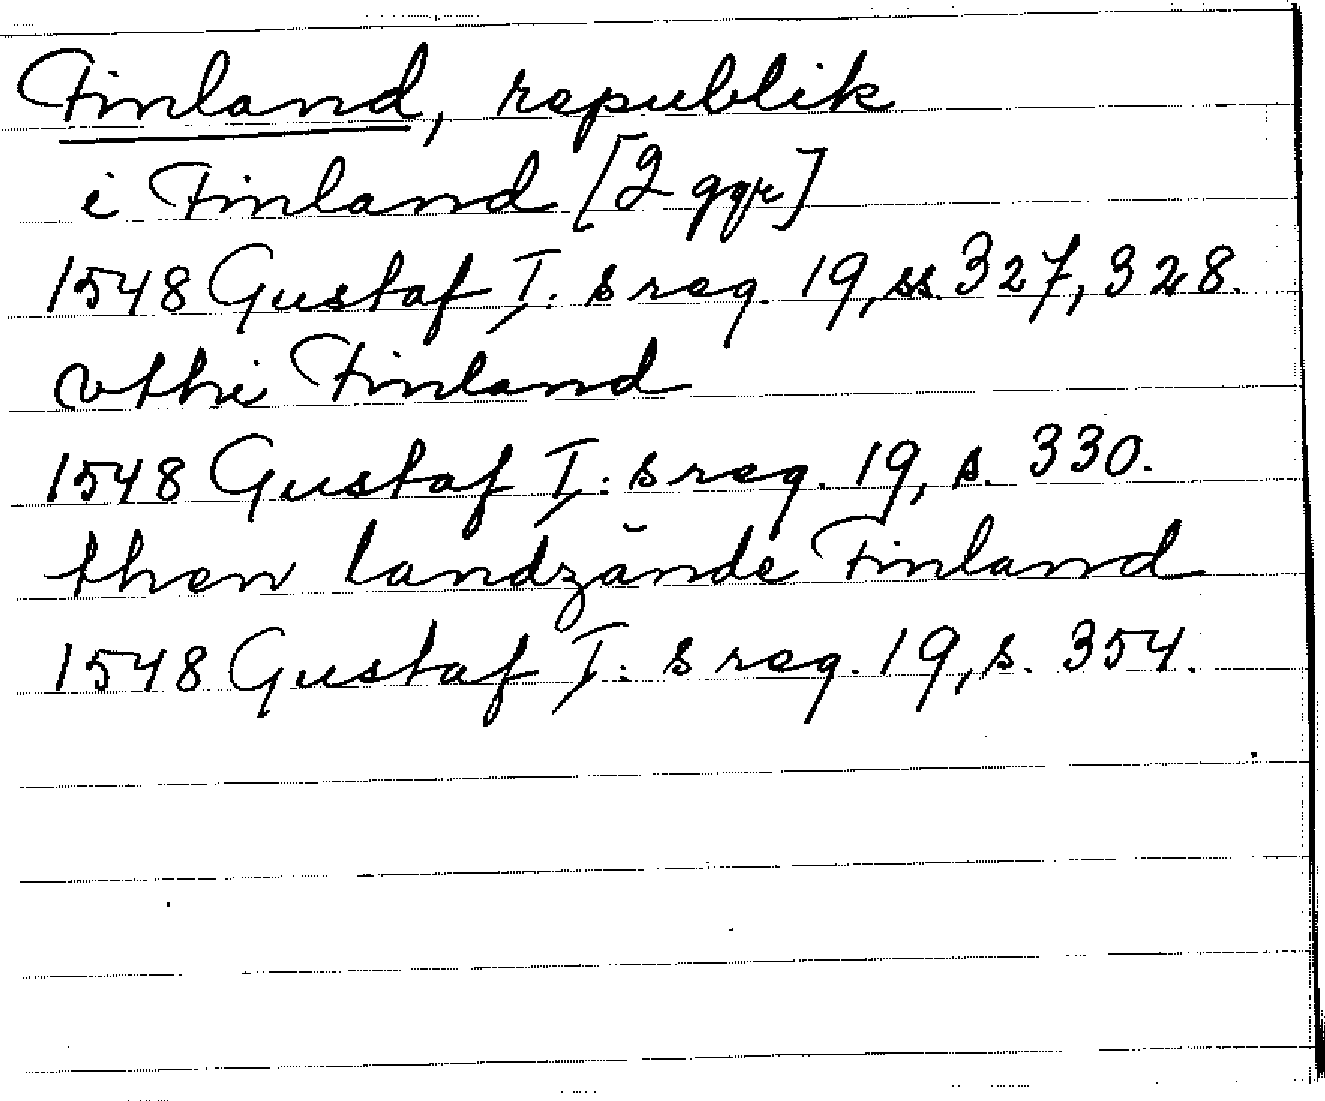 Finland, republik
i Finland [2 ggr]
1548 Gustaf I: s reg. 19, ss. 327, 328.
vthi Finland
1548 Gustaf I: s reg. 19, s. 330.
then landzände Finland
1548 Gustaf I: s reg. 19, s. 354.